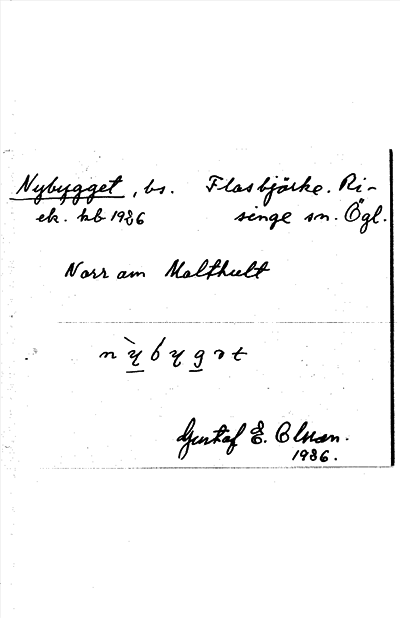 Nybygget, bs. Flasbjörke. Ri-
ek. kb 1926 singe sn. Ögl.
Norr om Malthult
nỳbygət
Gustaf E. Olsson.
1936.